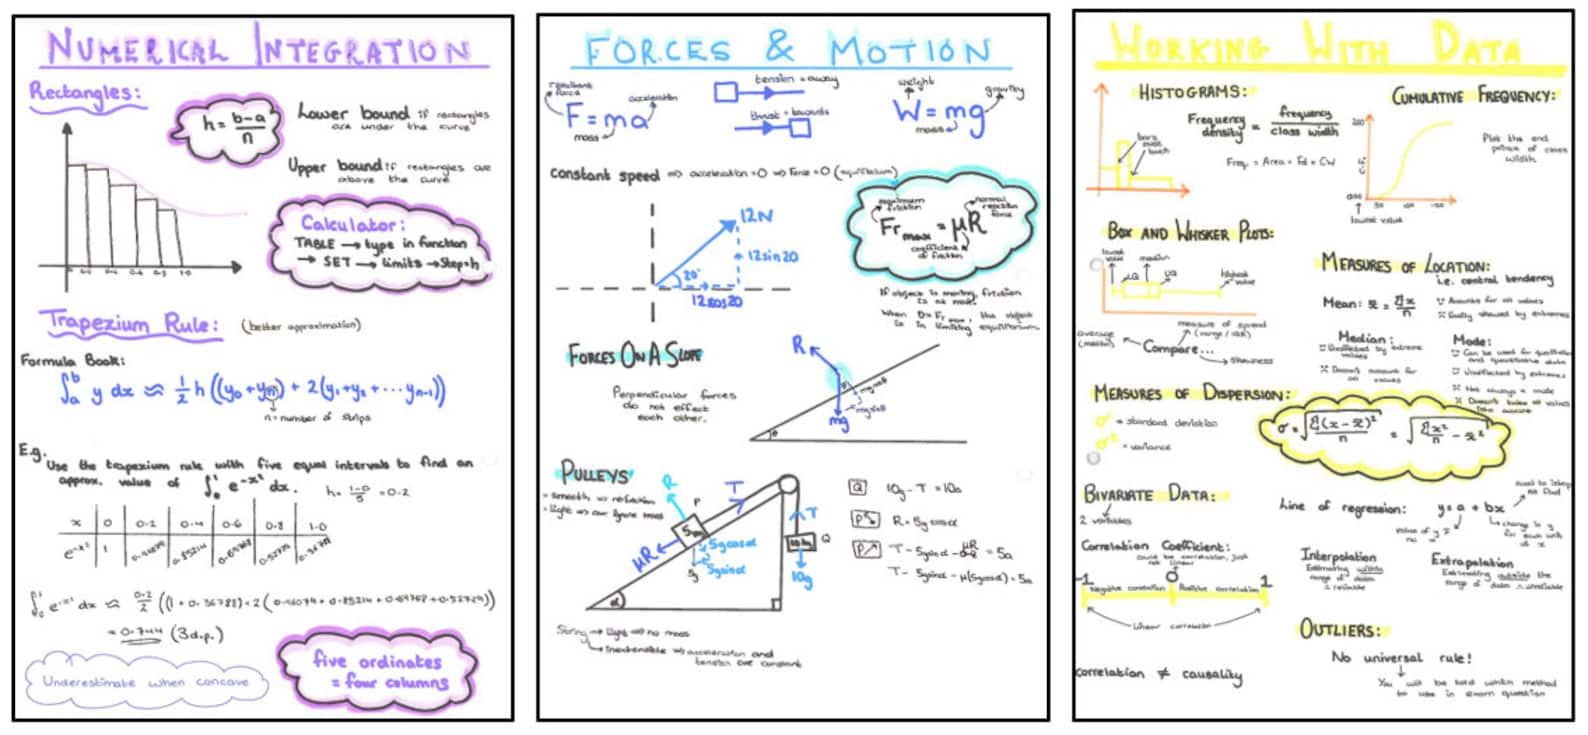 NUMERICAL INTEGRATION
Rectangles:
h = b-a/n
Lower bound if rectangles
are under the curve
Upper bound if rectangles are
above the curve
Calculator:
TABLE → type in function
→ SET → limits → Step=h
Trapezium Rule: (better approximation)
Formula Book:
∫ₐᵇ y dx ≈ ½ h ((y₀+yₙ) + 2(y₁+y₂+...yₙ₋₁))
n = number of strips
E.g.
Use the trapezium rule with five equal intervals to find an
approx. value of ∫₀¹ e^-x² dx. h = 1-0/5 = 0.2
x 0 0.2 0.4 0.6 0.8 1.0
e^-x² 1
= 0.744 (3d.p.)
Underestimate when concave
five ordinates
= four columns
FORCES & MOTION
resultant force
acceleration
F = ma
mass
tension = away
thrust = towards
weight
gravity
W = mg
mass
constant speed ⇒ acceleration = 0 ⇒ Force = 0 (equilibrium)
12N
12sin20
20°
12cos20
maximum friction
normal reaction force
Fr max = μR
coefficient of friction
If object is moving, friction
is at max.
the object
is in limiting equilibrium
FORCES ON A SLOPE
Perpendicular forces
do not effect
each other.
R
mg
PULLEYS
R
T
P
μR
5gcosα
5gsinα
5g
α
T
Q
10g
Q 10g - T = 10a
P R = 5gcosα
P T - 5gsinα - μR = 5a
T - 5gsinα - μ(5gcosα) = 5a
String → light ⇒ no mass
→ Inextensible ⇒ acceleration and
tension are constant
WORKING WITH DATA
HISTOGRAMS:
bars must touch
Frequency density = frequency / class width
Freq. = Area = Fd × CW
CUMULATIVE FREQUENCY:
Plot the end
lowest value
BOX AND WHISKER PLOTS:
lowest value
LQ
median
UQ
highest value
average
(median)
Compare...
measure of spread
(range / IQR)
skewness
MEASURES OF LOCATION:
i.e. central tendency
Mean: x̄ = Σx/n
Accounts for all values
Easily skewed by extremes
Median:
Unaffected by extreme
values
Doesn't account for
all values
Mode:
Can be used for qualitative
and quantitative data
Unaffected by extremes
Not always a mode
MEASURES OF DISPERSION:
σ = standard deviation
σ² = variance
σ = √(Σ(x-x̄)²/n) = √(Σx²/n - x̄²)
BIVARIATE DATA:
2 variables
Line of regression: y = a + bx
Correlation Coefficient:
could be correlation, just
not linear
-1 0 1
Negative correlation
Positive correlation
Linear correlation
Interpolation
Estimating within
range of data
= reliable
Extrapolation
Estimating outside the
range of data = unreliable
OUTLIERS:
No universal rule!
You will be told which method
to use in exam question
correlation ≠ causality